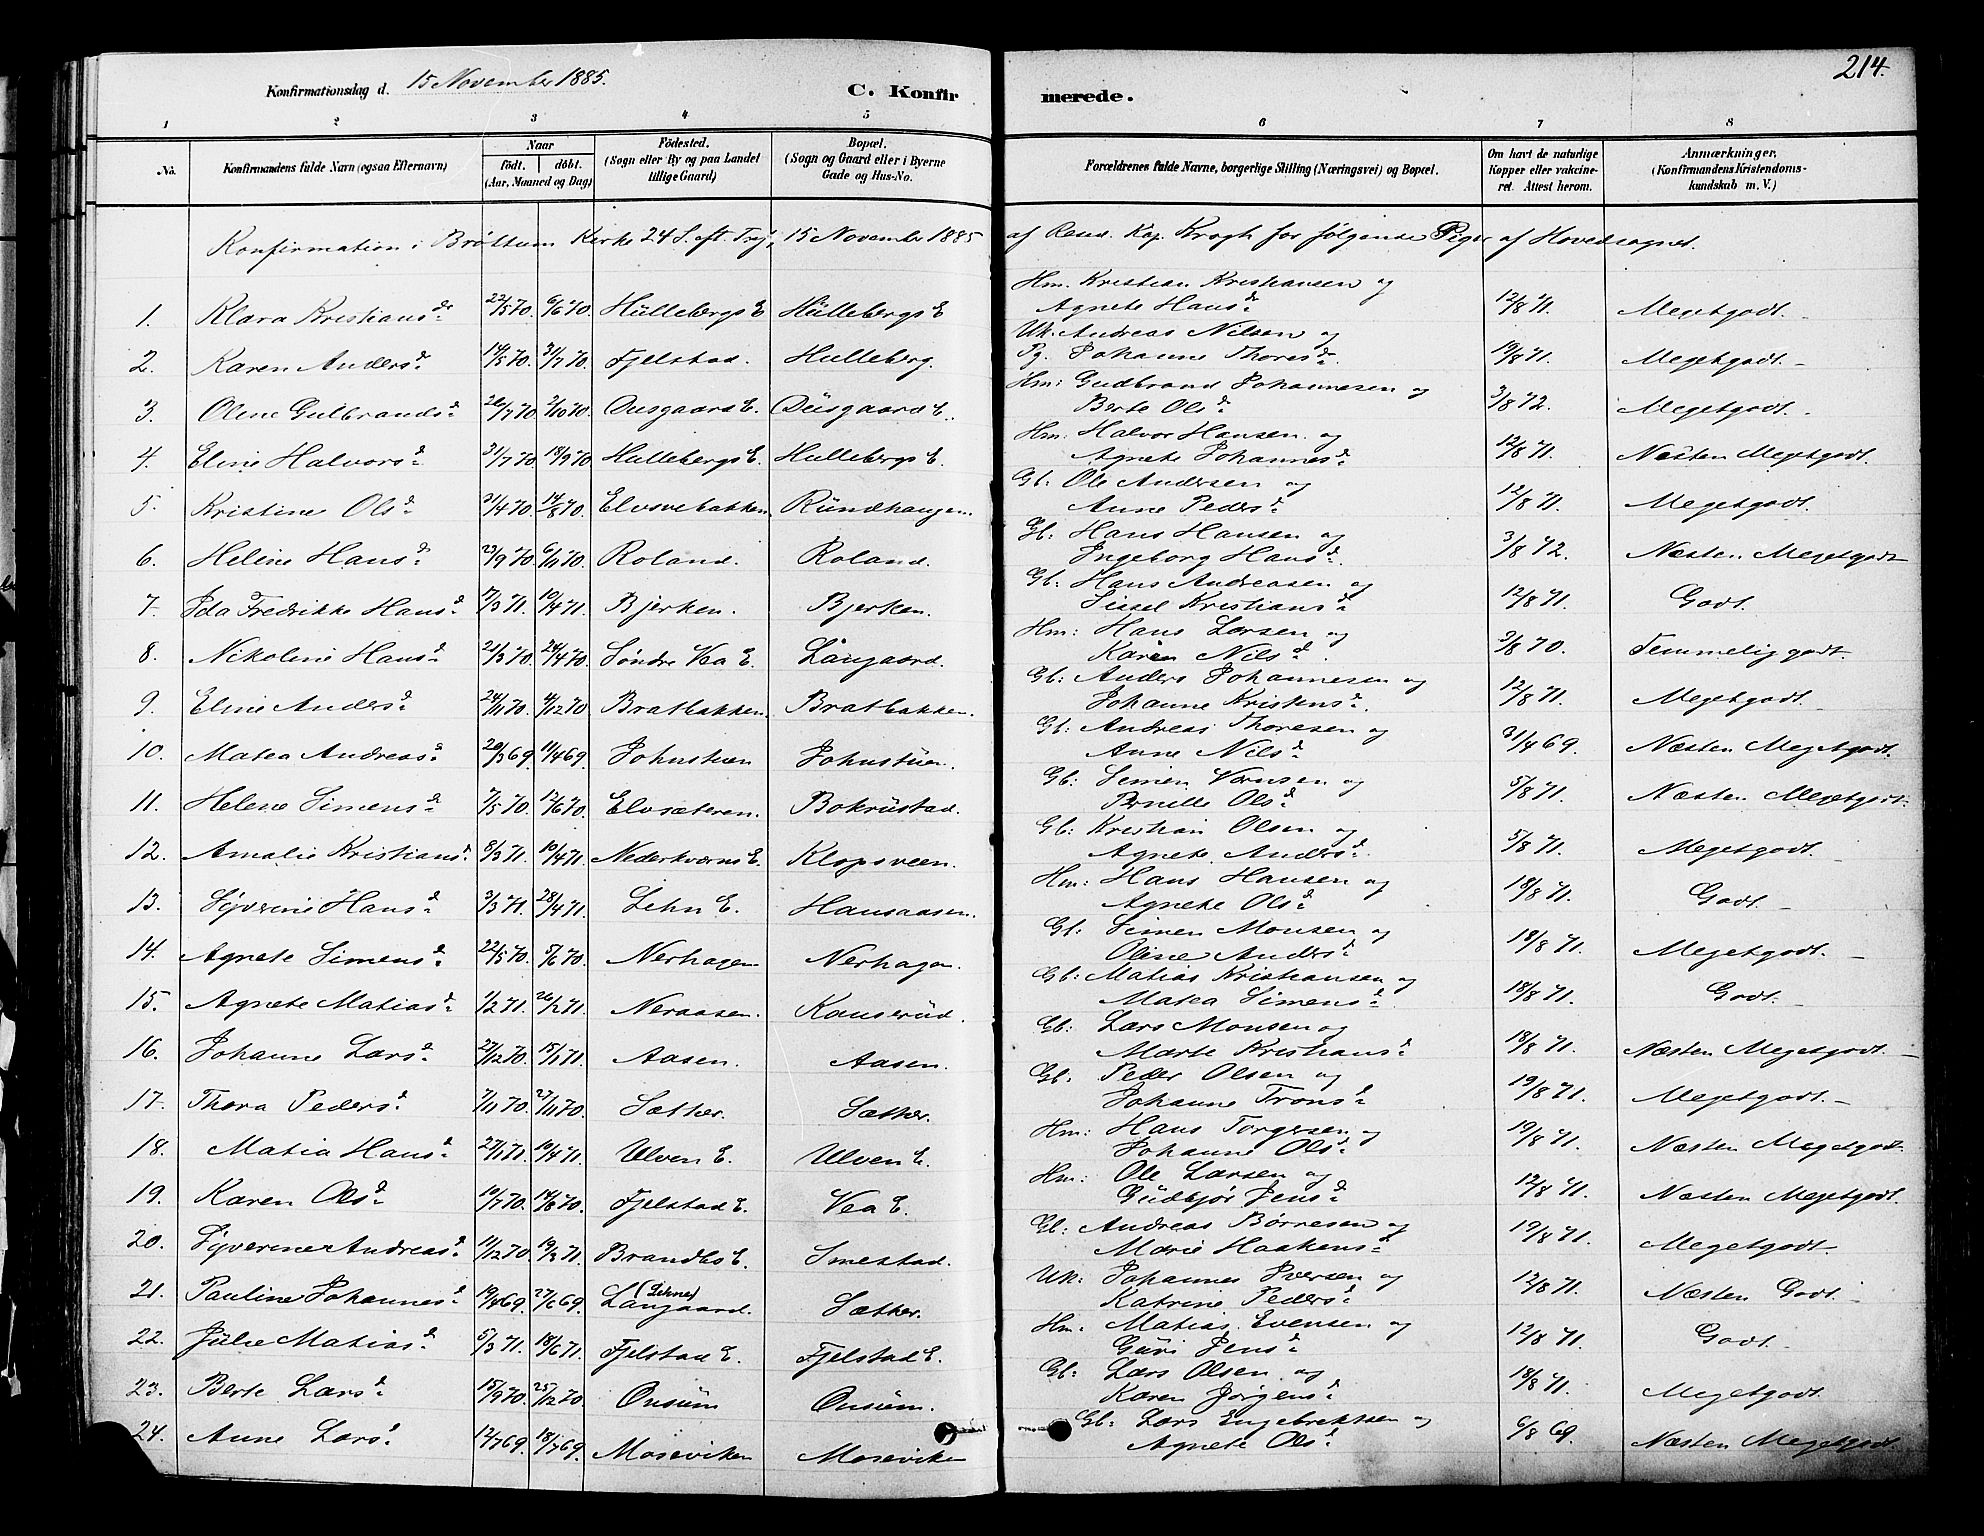 214.
Konfirmationsdag d. 15 November 1885.
C. Konfir merede.
1 2 3 4 5 6 7 8
No. Konfirmandens fulde Navn (ogsaa Efternavn) Naar födt. döbt. (Aar, Maaned og Dag) Födested. (Sogn eller By og paa Landet tillige Gaard) Bopæl. (Sogn og Gaard eller i Byerne Gade og Hus-No.) Forældrenes fulde Navne, borgerlige Stilling (Næringsvei) og Bopæl. Om havt de naturlige Kopper eller vakcineret. Attest herom. Anmærkninger. (Konfirmandens Kristendomskundskab m. V.)
Konfirmation i Brøttum Kirke 24 S. eft. Tref. 15 November 1885 af Kap. Krogh for følgende Piger af Hovedsognet.
1. Klara Kristiansd. 22/5 70. 6/6 70. Hullebergs E. Hullebergs E. Hm. Kristian Kristiansen og Agnete Hansd. 12/8 71. Megetgodt.
2. Karen Andersd. 14/5 70. 31/7 70. Fjelstad. Hulleberg. Uk. Andreas Nilsen og Pg. Johanne Thoresd. 19/8 71. Megetgodt. -
3. Oline Gulbrandsd. 26/7 70. 2/10 70. Dusgaard E. Dusgaard E. Hm: Gudbrand Johannesen og Berte Olsd. 3/8 72. Megetgodt.
4. Eline Halvorsd. 31/7 70. 18/9 70. Hullebergs E. Hullebergs E. Hm: Halvor Hansen og Agnete Johannesd. 12/8 71. Næsten Megetgodt.
5. Kristine Olsd. 21/4 70. 14/8 70. Elvsvebakken. Rundhaugen. Gb: Ole Andersen og Anne Pedersd. 12/8 71. Megetgodt.
6. Helene Hansd. 23/9 70. 6/11 70. Roland. Roland. Gb. Hans Hansen og Ingeborg Hansd. 3/8 72. Næsten Megetgodt
7. Ida Fredrikke Hansd. 7/3 71. 10/4 71. Bjerken. Bjerken. Gb: Hans Andreasen og Sissel Kristiansd. 12/8 71. Godt.
8. Nikoline Hansd. 21/3 70. 24/4 70. Søndre Vea E. Laugaard. Hm: Hans Larsen og Karen Nilsd. 3/8 70. Temmelig godt.
9. Eline Andersd. 24/11 70. 4/12 70 Bratbakken. Bratbakken. Gb: Anders Johannesen og Johanne Kristensd. 12/8 71. Megetgodt.
10. Matea Andreasd. 20/3 69. 11/4 69. Johnstuen Johnstuen. Gb: Andreas Thoresen og Anne Nilsd. 31/4 69. Næsten Megetgodt.
11. Helene Simensd. 7/5 70. 12/6 70. Elvsæteren. Bokrustad. Gb: Simen og Pernille Olsd. 5/8 71. Næsten Megetgodt.
12. Amalie Kristiansd. 8/3 71. 10/4 71. Nederkværns E. Klopsveen. Gb: Kristian Olsen og Agnete Andersd. 5/8 71. Megetgodt.
13. Syverine Hansd. 3/3 71. 28/4 71. Lehn E. Hansaasen. Hm: Hans Hansen og Agnete Olsd. 18/8 71. Godt. -
14. Agnete Simensd. 22/5 70. 5/6 70. Nerhagen Nerhagen. Gb. Simen Monsen og Oline Andersd. 18/8 71. Megetgodt. -
15. Agnete Matiasd. 1/2 71. 26/2 71. Neraasen. Kauserud. Gb: Matias Kristiansen og Matea Simensd. 18/8 71. Godt. -
16. Johanne Larsd. 27/12 70. 15/1 71. Aasen. Aasen. Gb: Lars Monsen og Marte Kristiansd. 18/8 71. Næsten Megetgodt. -
17. Thora Pedersd. 7/11 70. 27/11 70. Sæther. Sæther. Gb: Peder Olsen og Johanne Tronsd. 19/8 71. Megetgodt. -
18. Matia Hansd. 27/1 71. 10/4 71. Ulven E. Ulven E. Hm: Hans Torgersen og Johanne Olsd. 19/8 71. Næsten Megetgodt.
19. Karen Olsd. 10/7 70. 14/8 70. Fjelstad E. Vea E. Hm: Ole Larsen og Gudbjør Jensd. 12/8 71. Næsten Megetgodt.
20. Syverine Andreasd. 11/12 70. 19/3 71. Brandbo E. Smestad. Gb: Andreas Børresen og Marie Haakensd. 19/8 71. Megetgodt.
21. Pauline Johannesd. 19/4 69. 27/6 69. (Lehne) Laugaard. Sæther. Uk: Johannes Iversen og Katrine Pedersd. 12/8 71. Næsten Godt. -
22. Julie Matiasd. 5/3 71. 18/6 71. Fjelstad E. Fjelstad E. Hm: Matias Evensen og Guri Jensd. 12/8 71. Godt. -
23. Berte Larsd. 15/9 70. 25/12 70. Onsum Onsum. Gb: Lars Olsen og Karen Jørgensd. 18/8 71. Megetgodt.
24. Anne Larsd. 12/7 69. 18/7 69. Moseviken Moseviken Gb: Lars Engebrektsen og Agnete Olsd. 6/8 69. Næsten Megetgodt.